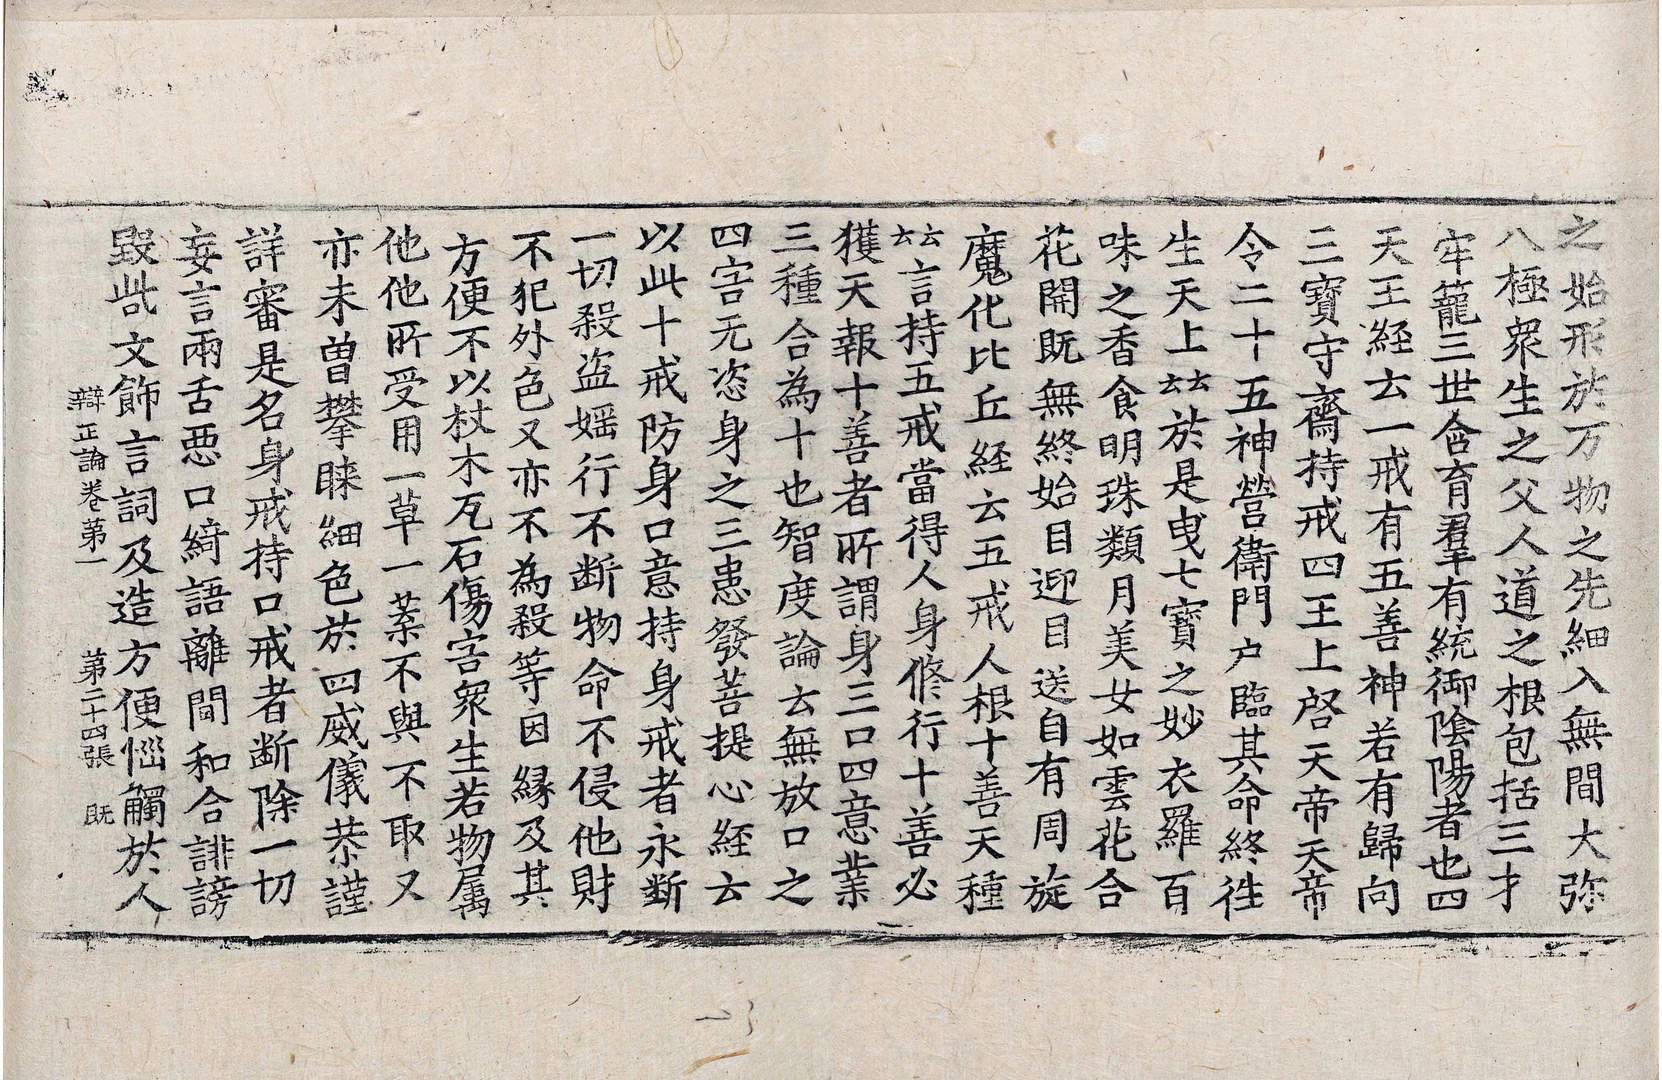 之始形於万物之先細入無間大弥
八極衆生之父人道之根包括三才
牢籠三世含育羣有統御陰陽者也四
天王經云一戒有五善神若有歸向
三寶守齋持戒四王上啓天帝天帝
令二十五神營衛門户臨其命終徃
生天上云云於是曳七寶之妙衣羅百
味之香食明珠類月美女如雲花合
花開既無終始目迎目送自有周旋
魔化比丘經云五戒人根十善天種
云云言持五戒當得人身修行十善必
獲天報十善者所謂身三口四意業
三種合為十也智度論云無放口之
四害无恣身之三患發菩提心經云
以此十戒防身口意持身戒者永断
一切殺盗婬行不断物命不侵他財
不犯外色又亦不為殺等因縁及其
方便不以杖木瓦石傷害衆生若物属
他他所受用一草一葉不與不取又
亦未曽攀睐細色於四威儀恭謹
詳審是名身戒持口戒者断除一切
妄言兩舌惡口綺語離間和合誹謗
毀呰文飾言詞及造方便惱觸於人
辯正論卷第一 第二十四張 既